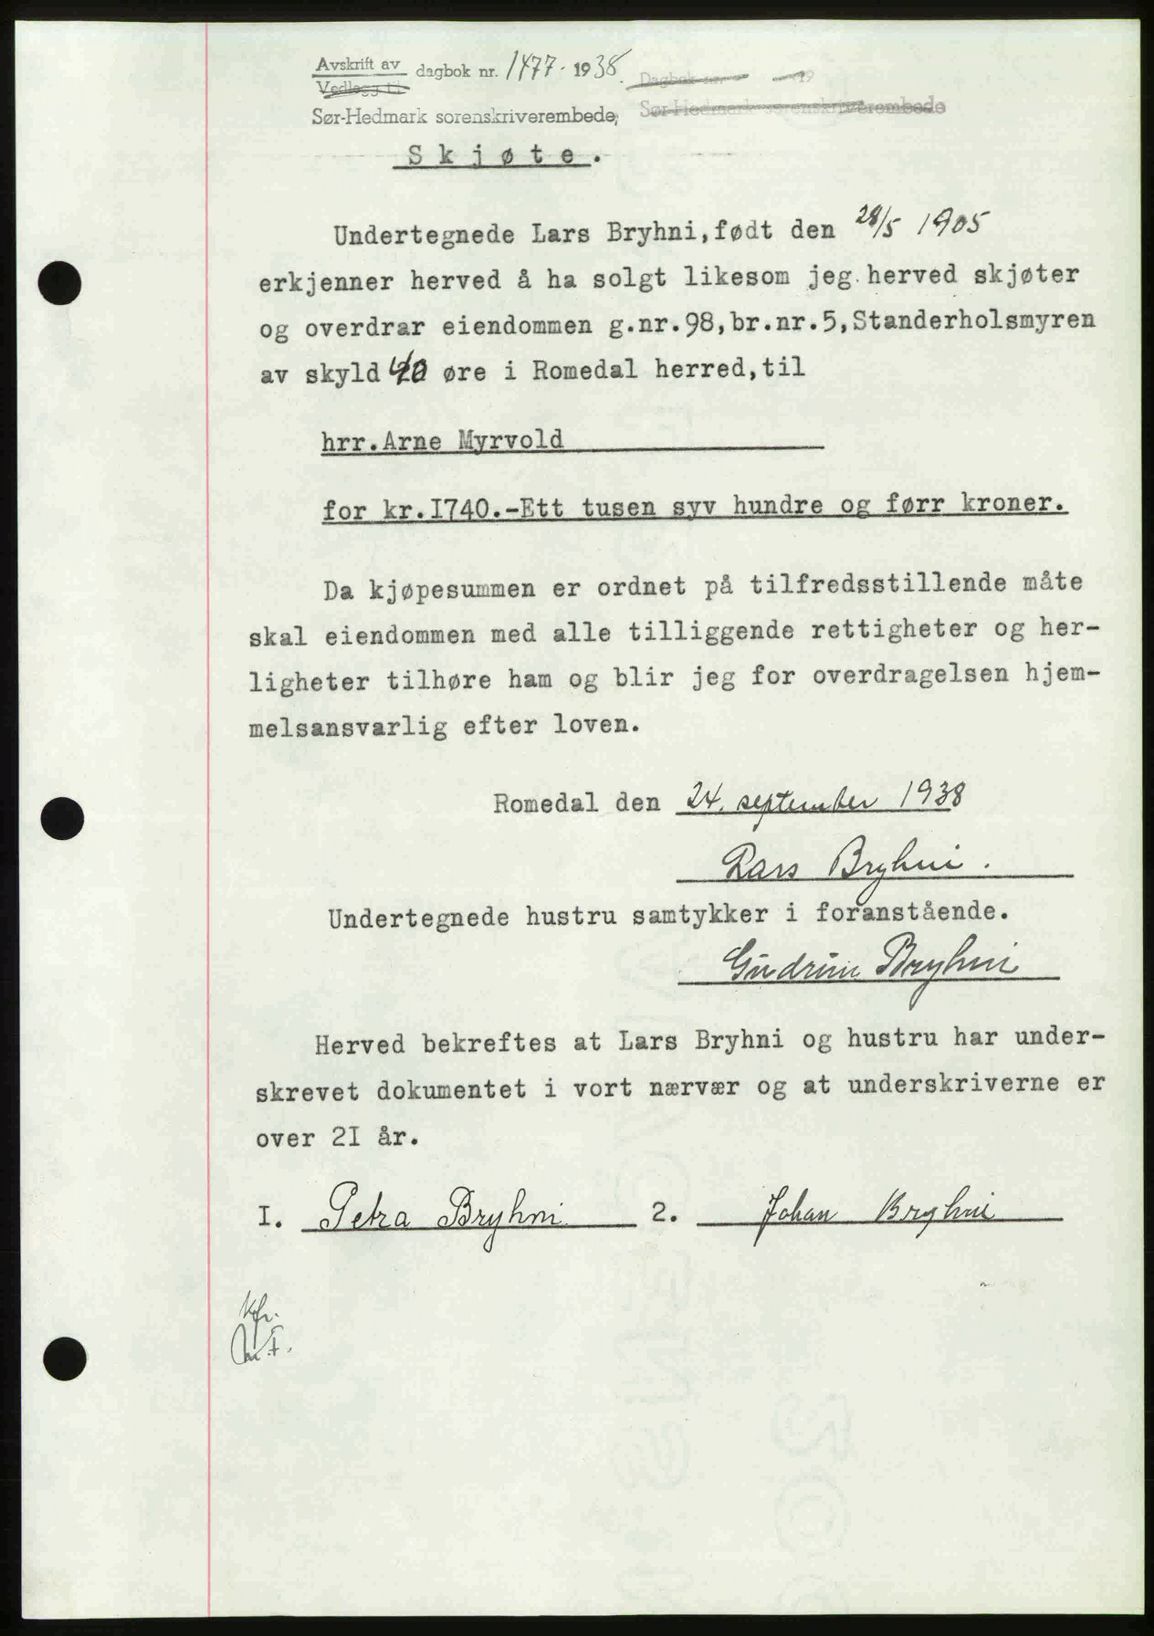 Avskrift av dagbok nr. 1477 - 1938.
Vedlegg til
Dagbok nr. 19
Sør-Hedmark sorenskriverembede;
Sør-Hedmark sorenskriverembede
Skjøte.
Undertegnede Lars Bryhni, født den 28/5 1905
erkjenner herved å ha solgt likesom jeg herved skjøter
og overdrar eiendommen g.nr.98,br.nr.5,Standerholsmyren
av skyld 40 øre i Romedal herred,til
hrr.Arne Myrvold
for kr.I740.-Ett tusen syv hundre og førr kroner.
Da kjøpesummen er ordnet på tilfredsstillende måte
skal eiendommen med alle tilliggende rettigheter og her-
ligheter tilhøre ham og blir jeg for overdragelsen hjem-
melsansvarlig efter loven.
Romedal den 24. september 1938
Lars Bryhni.
Undertegnede hustru samtykker i foranstående.
Gudrun Bryhni
Herved bekreftes at Lars Bryhni og hustru har under-
skrevet dokumentet i vort nærvær og at underskriverne er
over 2I år.
I. Petra Bryhni 2. Johan Bryhni